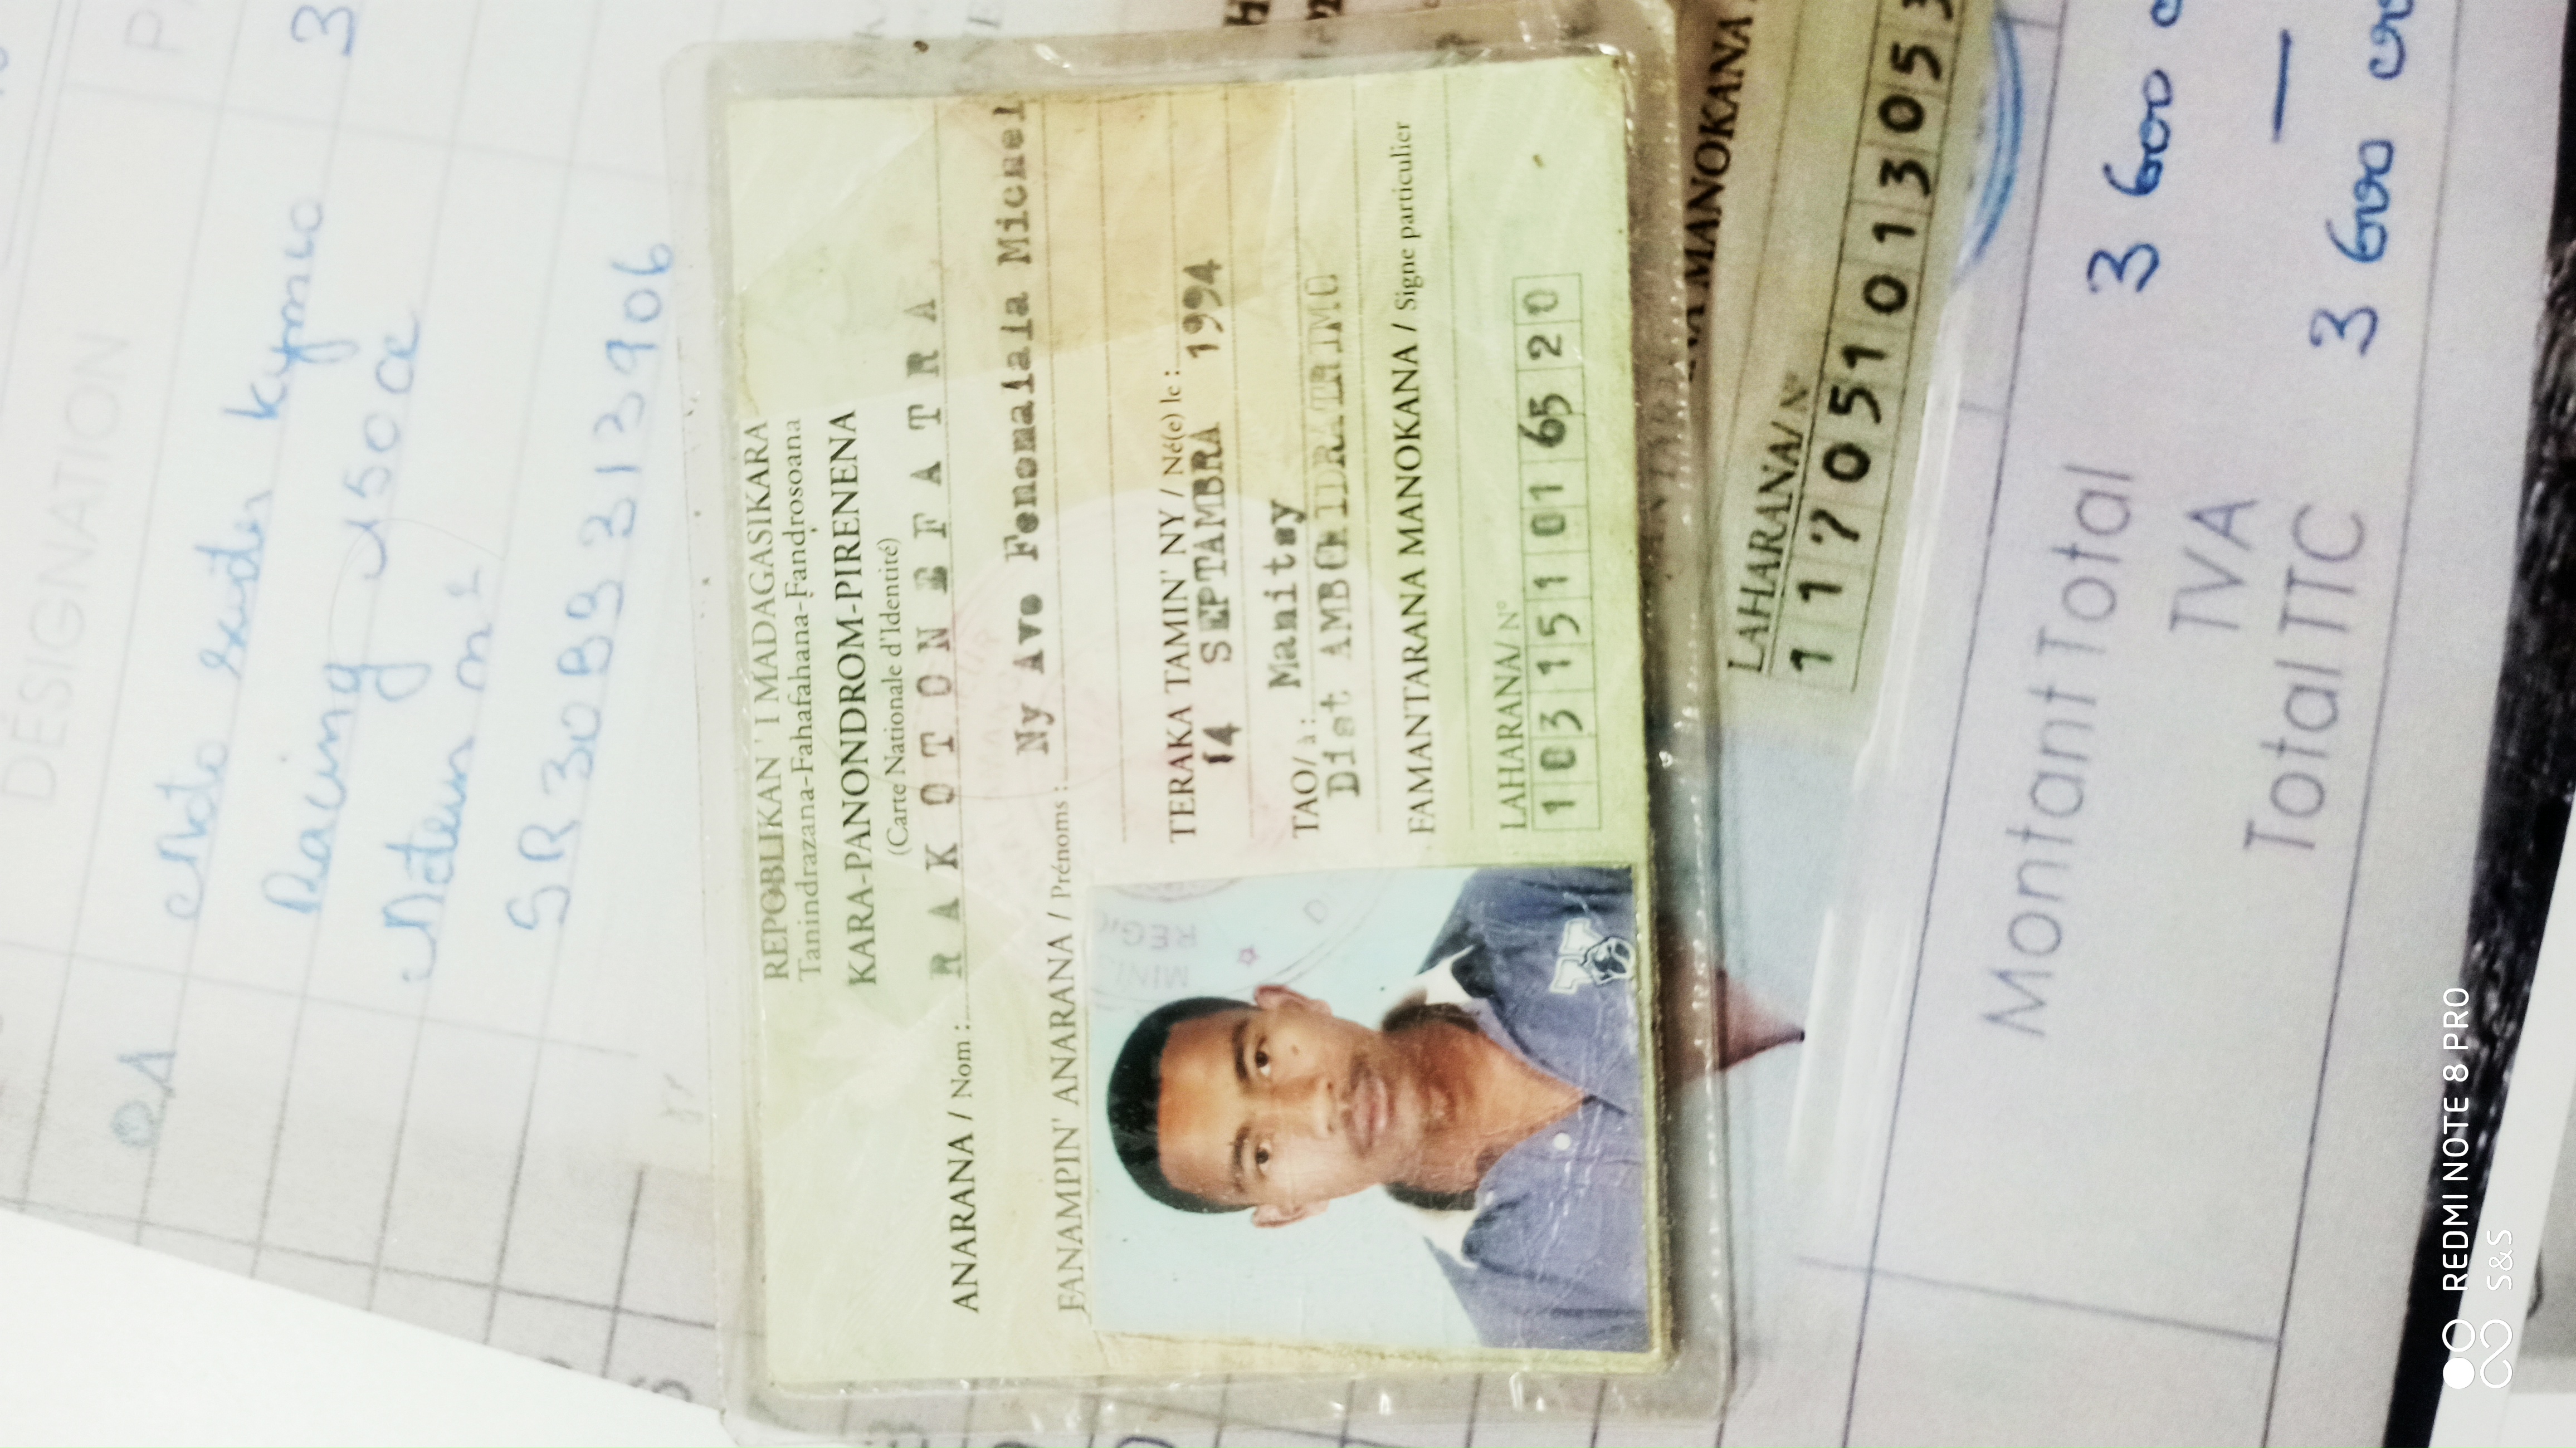 DÉSIGNATION
P
01 Moto scooter Kymco
3
Racing 150cc
Moteur n°
SR30BB313906
REPOBLIKAN ' I MADAGASIKARA
Tanindrazana-Fahafahana-Fandrosoana
KARA-PANONDROM-PIRENENA
(Carte Nationale d'Identité)
ANARANA / Nom : RAKOTONEFATRA
FANAMPIN' ANARANA / Prénoms : Ny Avo Fenomalala Michel
TERAKA TAMIN' NY / Né(e) le :
14 SEPTAMBRA 1994
TAO/ à : Manitsy
Dist AMBOHIDRATRIMO
FAMANTARANA MANOKANA / Signe particulier
LAHARANA/ N°
103 151 016520
MANOKANA
LAHARANA/ N°
11705101305
Montant Total 3 600
TVA —
Total TTC 3 600
REDMI NOTE 8 PRO
S&S